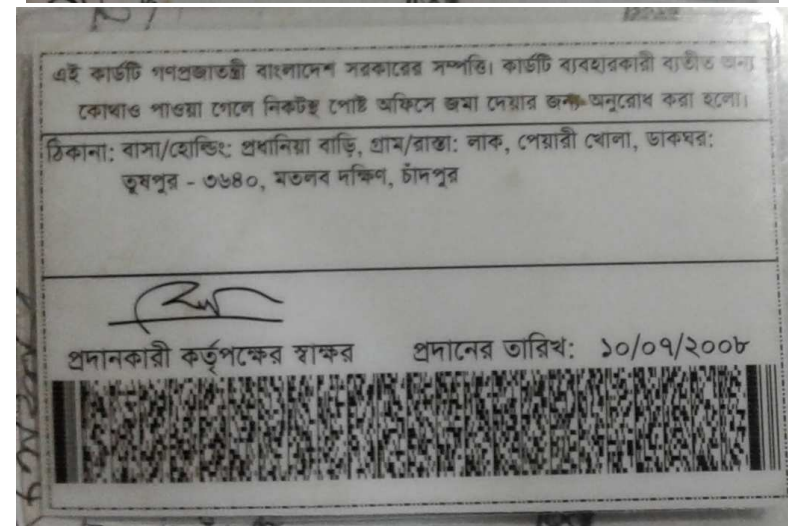 এই কার্ডটি গণপ্রজাতন্ত্রী বাংলাদেশ সরকারের সম্পত্তি। কার্ডটি ব্যবহারকারী ব্যতীত অন্য
কোথাও পাওয়া গেলে নিকটস্থ পোষ্ট অফিসে জমা দেয়ার জন্য অনুরোধ করা হলো।
ঠিকানা: বাসা/হোল্ডিং: প্রধানিয়া বাড়ি, গ্রাম/রাস্তা: লাক, পেয়ারী খোলা, ডাকঘর:
তুষপুর - ৩৬৪০, মতলব দক্ষিণ, চাঁদপুর
প্রদানকারী কর্তৃপক্ষের স্বাক্ষর প্রদানের তারিখ: ১০/০৭/২০০৮